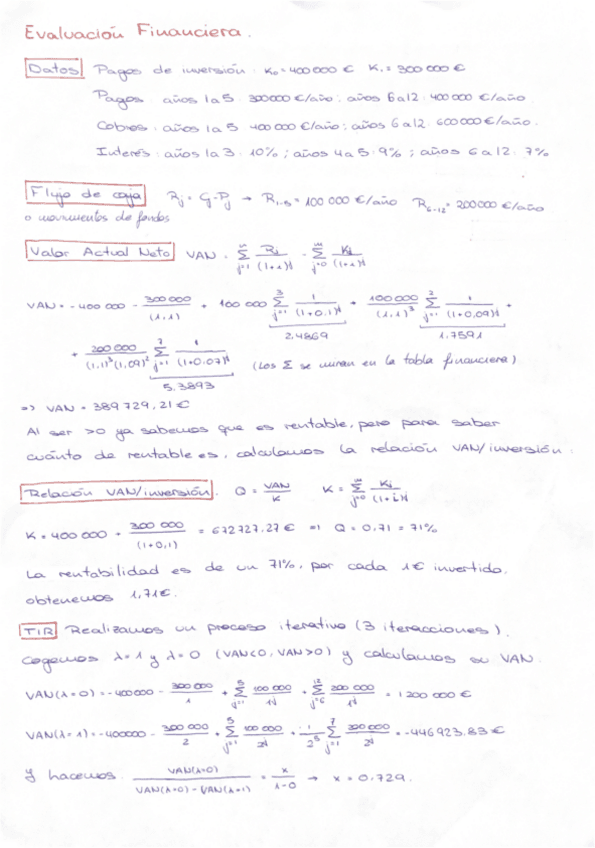 Evaluación Financiera.
Datos Pagos de inversión: K₀=400000 € K₁=300000 €
Pagos: años 1a5: 300000 €/año; años 6a12: 400000 €/año.
Cobros: años 1a5 400000 €/año; años 6a12: 600000 €/año.
Interés: años 1a3: 10%; años 4a5: 9%; años 6a12: 7%
Flujo de caja Rj = Cj-Pj → R₁₋₅ = 100 000 €/año R₆₋₁₂ = 200000 €/año
o movimientos de fondos
Valor Actual Neto VAN = Σ_{j=1}^{n} Rj/(1+i)^j - Σ_{j=0}^{m} Kj/(1+i)^j
VAN = -400 000 - 300 000/(1,1) + 100 000 Σ_{j=1}^{3} 1/(1+0,1)^j + 100000/(1,1)³ Σ_{j=1}^{2} 1/(1+0,09)^j +
2,4869 1,7591
+ 200 000/((1,1)³(1,09)²) Σ_{j=1}^{7} 1/(1+0,07)^j (Los Σ se miran en la tabla financiera)
5,3893
=> VAN = 389729,21 €
Al ser >0 ya sabemos que es rentable, pero para saber
cuánto de rentable es, calculamos la relación VAN/inversión:
Relación VAN/inversión. Q = VAN/K K = Σ_{j=0}^{m} Kj/(1+i)^j
K = 400 000 + 300 000/(1+0,1) = 672727,27 € => Q = 0,71 = 71%
La rentabilidad es de un 71%, por cada 1€ invertido,
obtenemos 1,71€.
TIR Realizamos un proceso iterativo (3 iteracciones).
Cogemos λ=1 y λ=0 (VAN<0, VAN>0) y calculamos su VAN.
VAN(λ=0) = -400000 - 300 000/1 + Σ_{j=1}^{5} 100 000/1^j + Σ_{j=6}^{12} 200 000/1^j = 1200 000 €
VAN(λ=1) = -400000 - 300 000/2 + Σ_{j=1}^{5} 100 000/2^j + 1/2⁵ Σ_{j=1}^{7} 200000/2^j = -446923,83 €
y hacemos: VAN(λ=0)/(VAN(λ=0) - VAN(λ=1)) = x/(1-0) → x = 0,729.